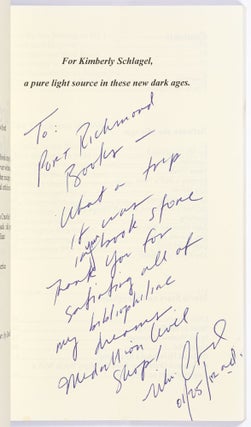 For Kimberly Schlagel,
a pure light source in these new dark ages.
To:
Port Richmond
Books —
What a trip
it was
your
book store
Thank you for
satiating all of
my bibliophiliac
dreams
Medallion level
Shop!
01/25/12 a.d.